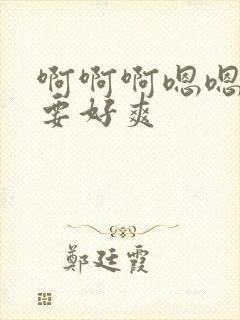 啊啊啊嗯嗯
要好爽
鄭廷霞